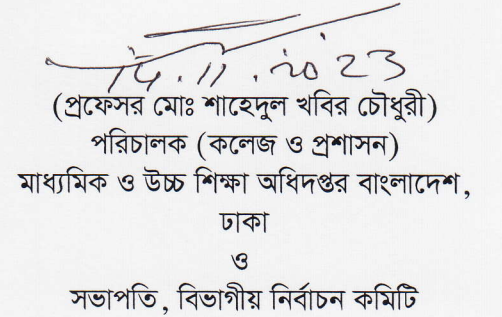 14.11.2023
(প্রফেসর মোঃ শাহেদুল খবির চৌধুরী)
পরিচালক (কলেজ ও প্রশাসন)
মাধ্যমিক ও উচ্চ শিক্ষা অধিদপ্তর বাংলাদেশ,
ঢাকা
ও
সভাপতি, বিভাগীয় নির্বাচন কমিটি